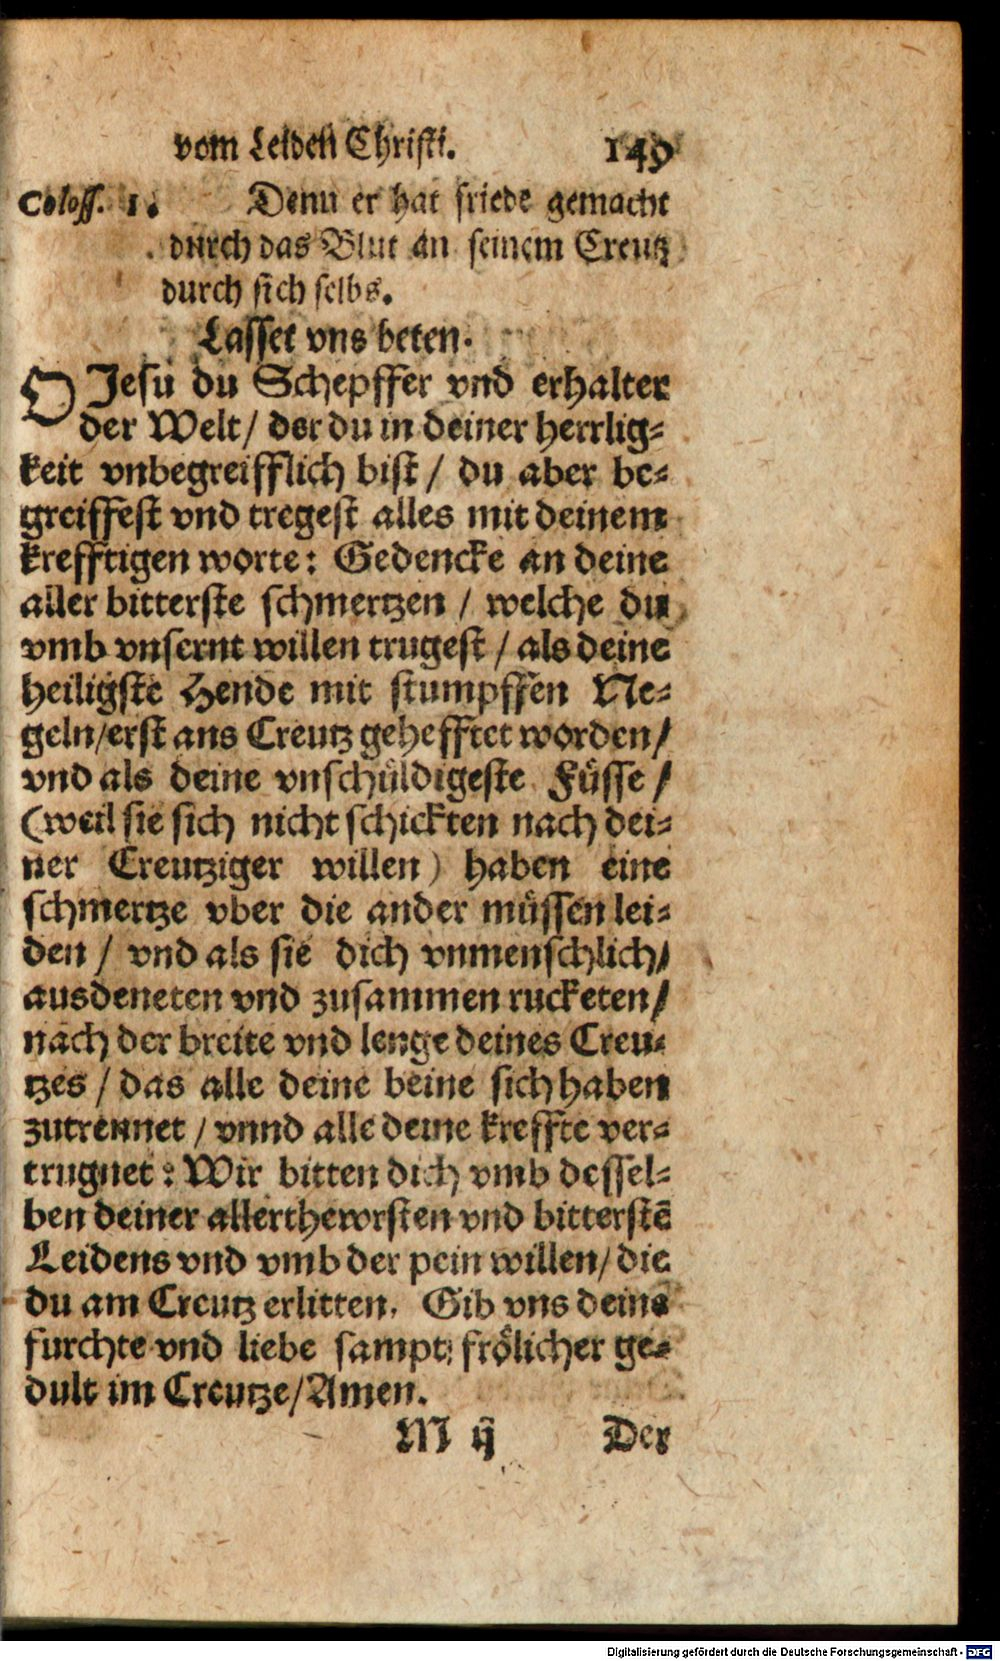 vom Leiden Christi. 149
Coloss. 1. Denn er hat friede gemacht
durch das Blut an seinem Creutz
durch sich selbs.
Lasset vns beten.
O Jesu du Schepffer vnd erhalter
der Welt / der du in deiner herrlig⸗
keit vnbegreifflich bist / du aber be⸗
greiffest vnd tregest alles mit deinem
krefftigen worte: Gedencke an deine
aller bitterste schmertzen / welche du
vmb vnsernt willen trugest / als deine
heiligste Hende mit stumpffen Ne⸗
geln / erst ans Creutz gehefftet worden /
vnd als deine vnschüldigeste Füsse /
(weil sie sich nicht schickten nach dei⸗
ner Creutziger willen) haben eine
schmertze vber die ander müssen lei⸗
den / vnd als sie dich vnmenschlich /
ausdeneten vnd zusammen rucketen /
nach der breite vnd lenge deines Creu⸗
tzes / das alle deine beine sich haben
zutrennet / vnnd alle deine kreffte ver⸗
trugnet: Wir bitten dich vmb dessel⸗
ben deiner allerthewrsten vnd bitterstē
Leidens vnd vmb der pein willen / die
du am Creutz erlitten. Gib vns deine
furchte vnd liebe sampt frölicher ge⸗
dult im Creutze / Amen.
M ij Der
Digitalisierung gefördert durch die Deutsche Forschungsgemeinschaft - DFG